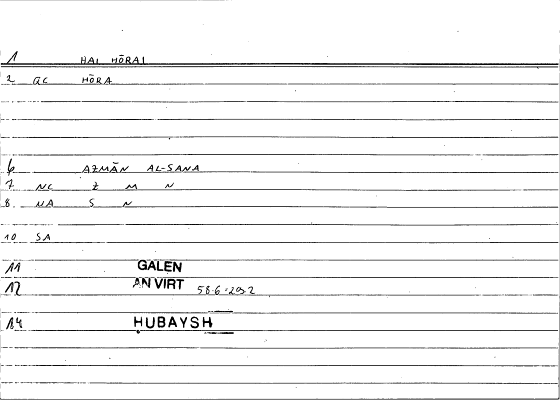 1 HAI HŌRAI
2 GC HŌRA
6 AZMĀN AL-SANA
7. NC Z M N
8. NA S N
10 SA
11 GALEN
12 AN VIRT 586-2
14 HUBAYSH